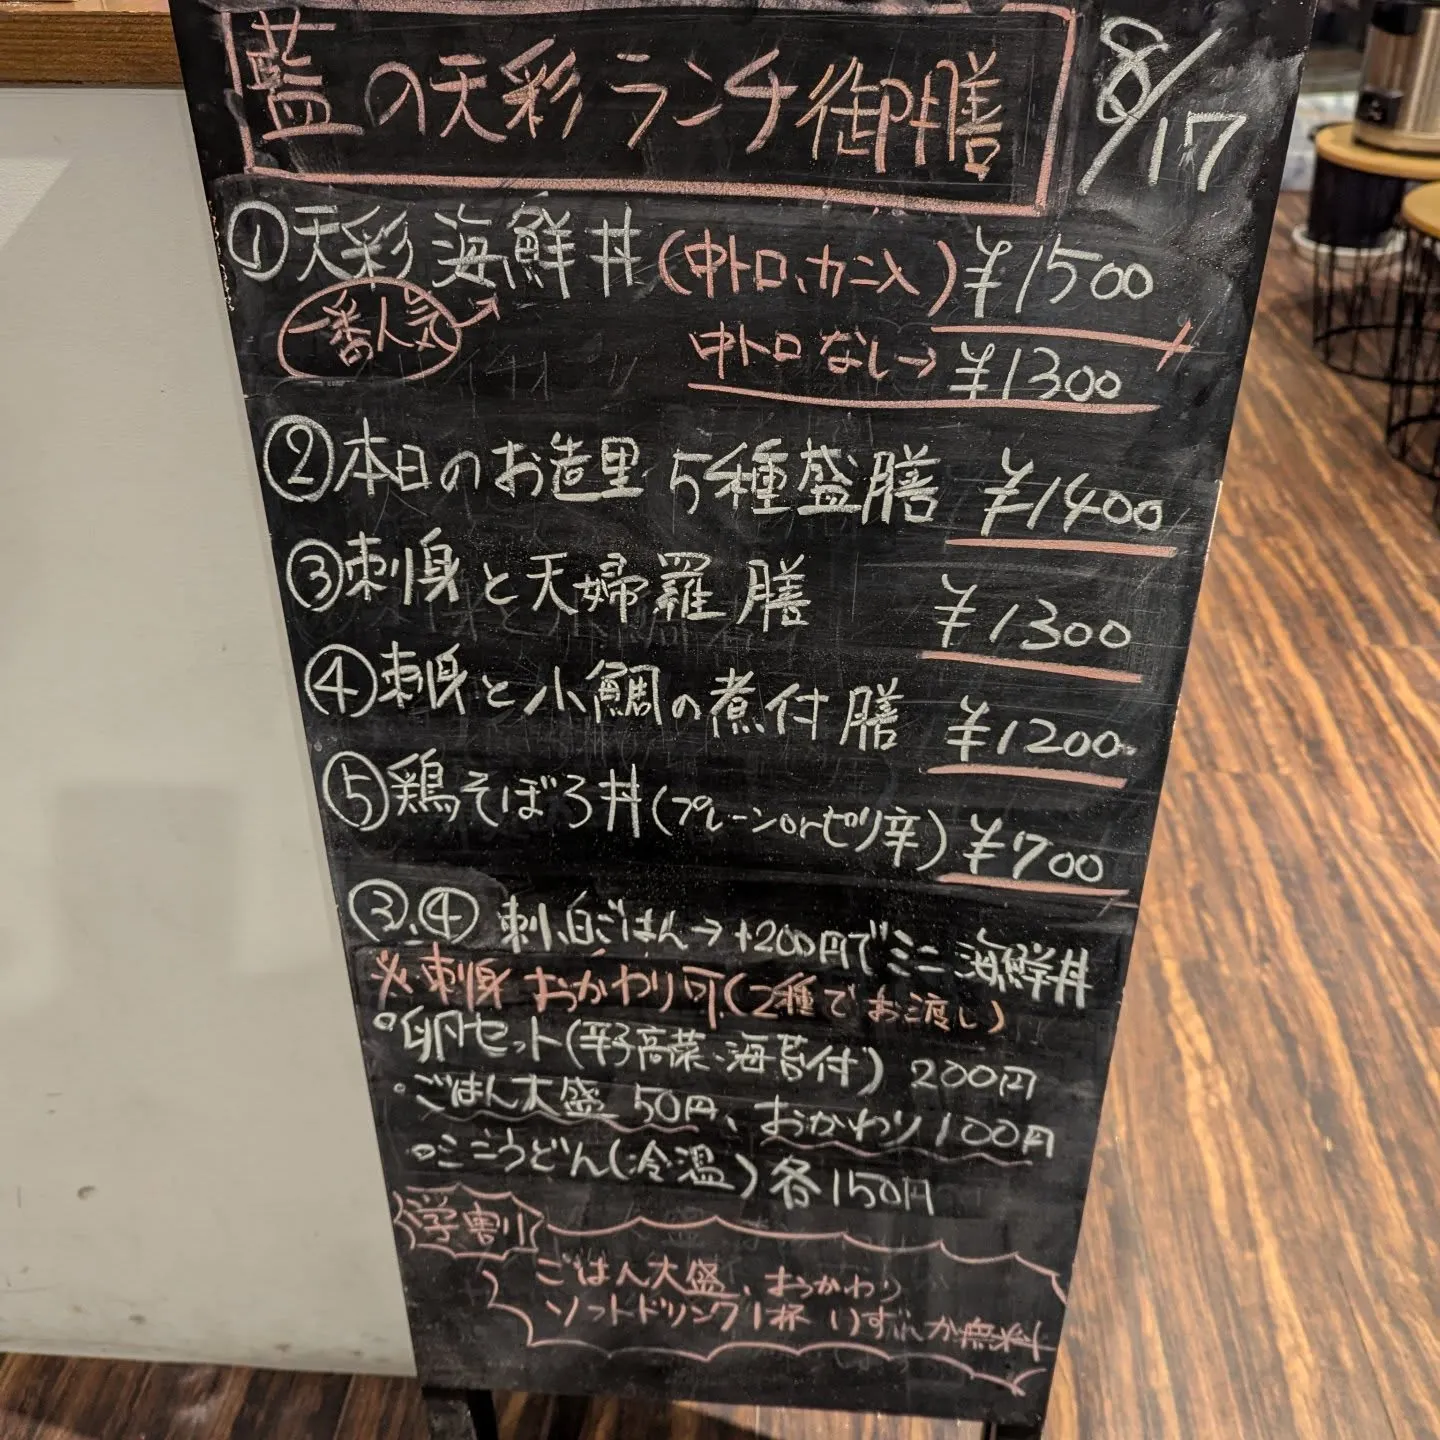 藍の天彩ランチ御膳
8/17
①天彩海鮮丼(中トロ、カニ入)¥1500
一番人気
中トロなし→¥1300
②本日のお造里5種盛膳 ¥1400
③刺身と天婦羅膳 ¥1300
④刺身と小鯛の煮付膳 ¥1200
⑤鶏そぼろ丼(プレーンorピリ辛)¥700
③、④刺、白ごはん→+200円でミニ海鮮丼
※刺身おかわり可(2種でお渡し)
卵セット(辛子高菜、海苔付)200円
ごはん大盛50円、おかわり100円
ミニうどん(冷温)各150円
学割
ごはん大盛、おかわり
ソフトドリンク1杯いずれか無料